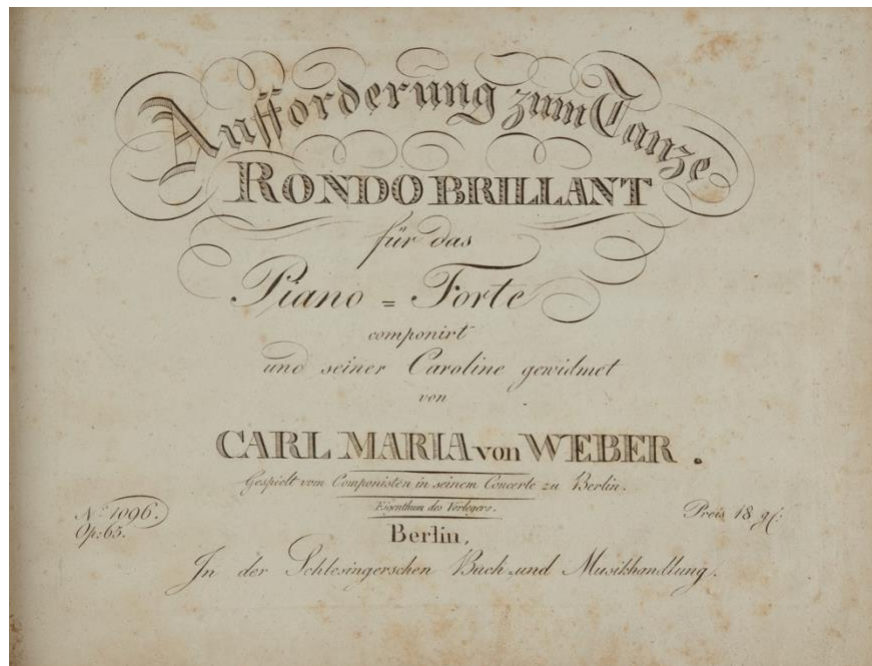 Aufforderung zum Tanze
RONDO BRILLANT
für das
Piano = Forte
componirt
und seiner Caroline gewidmet
von
CARL MARIA von WEBER.
Gespielt vom Componisten in seinem Concerte zu Berlin.
Eigenthum des Verlegers.
No. 1096.
Op: 65.
Preis 18 gr:
Berlin,
In der Schlesingerschen Buch und Musikhandlung.